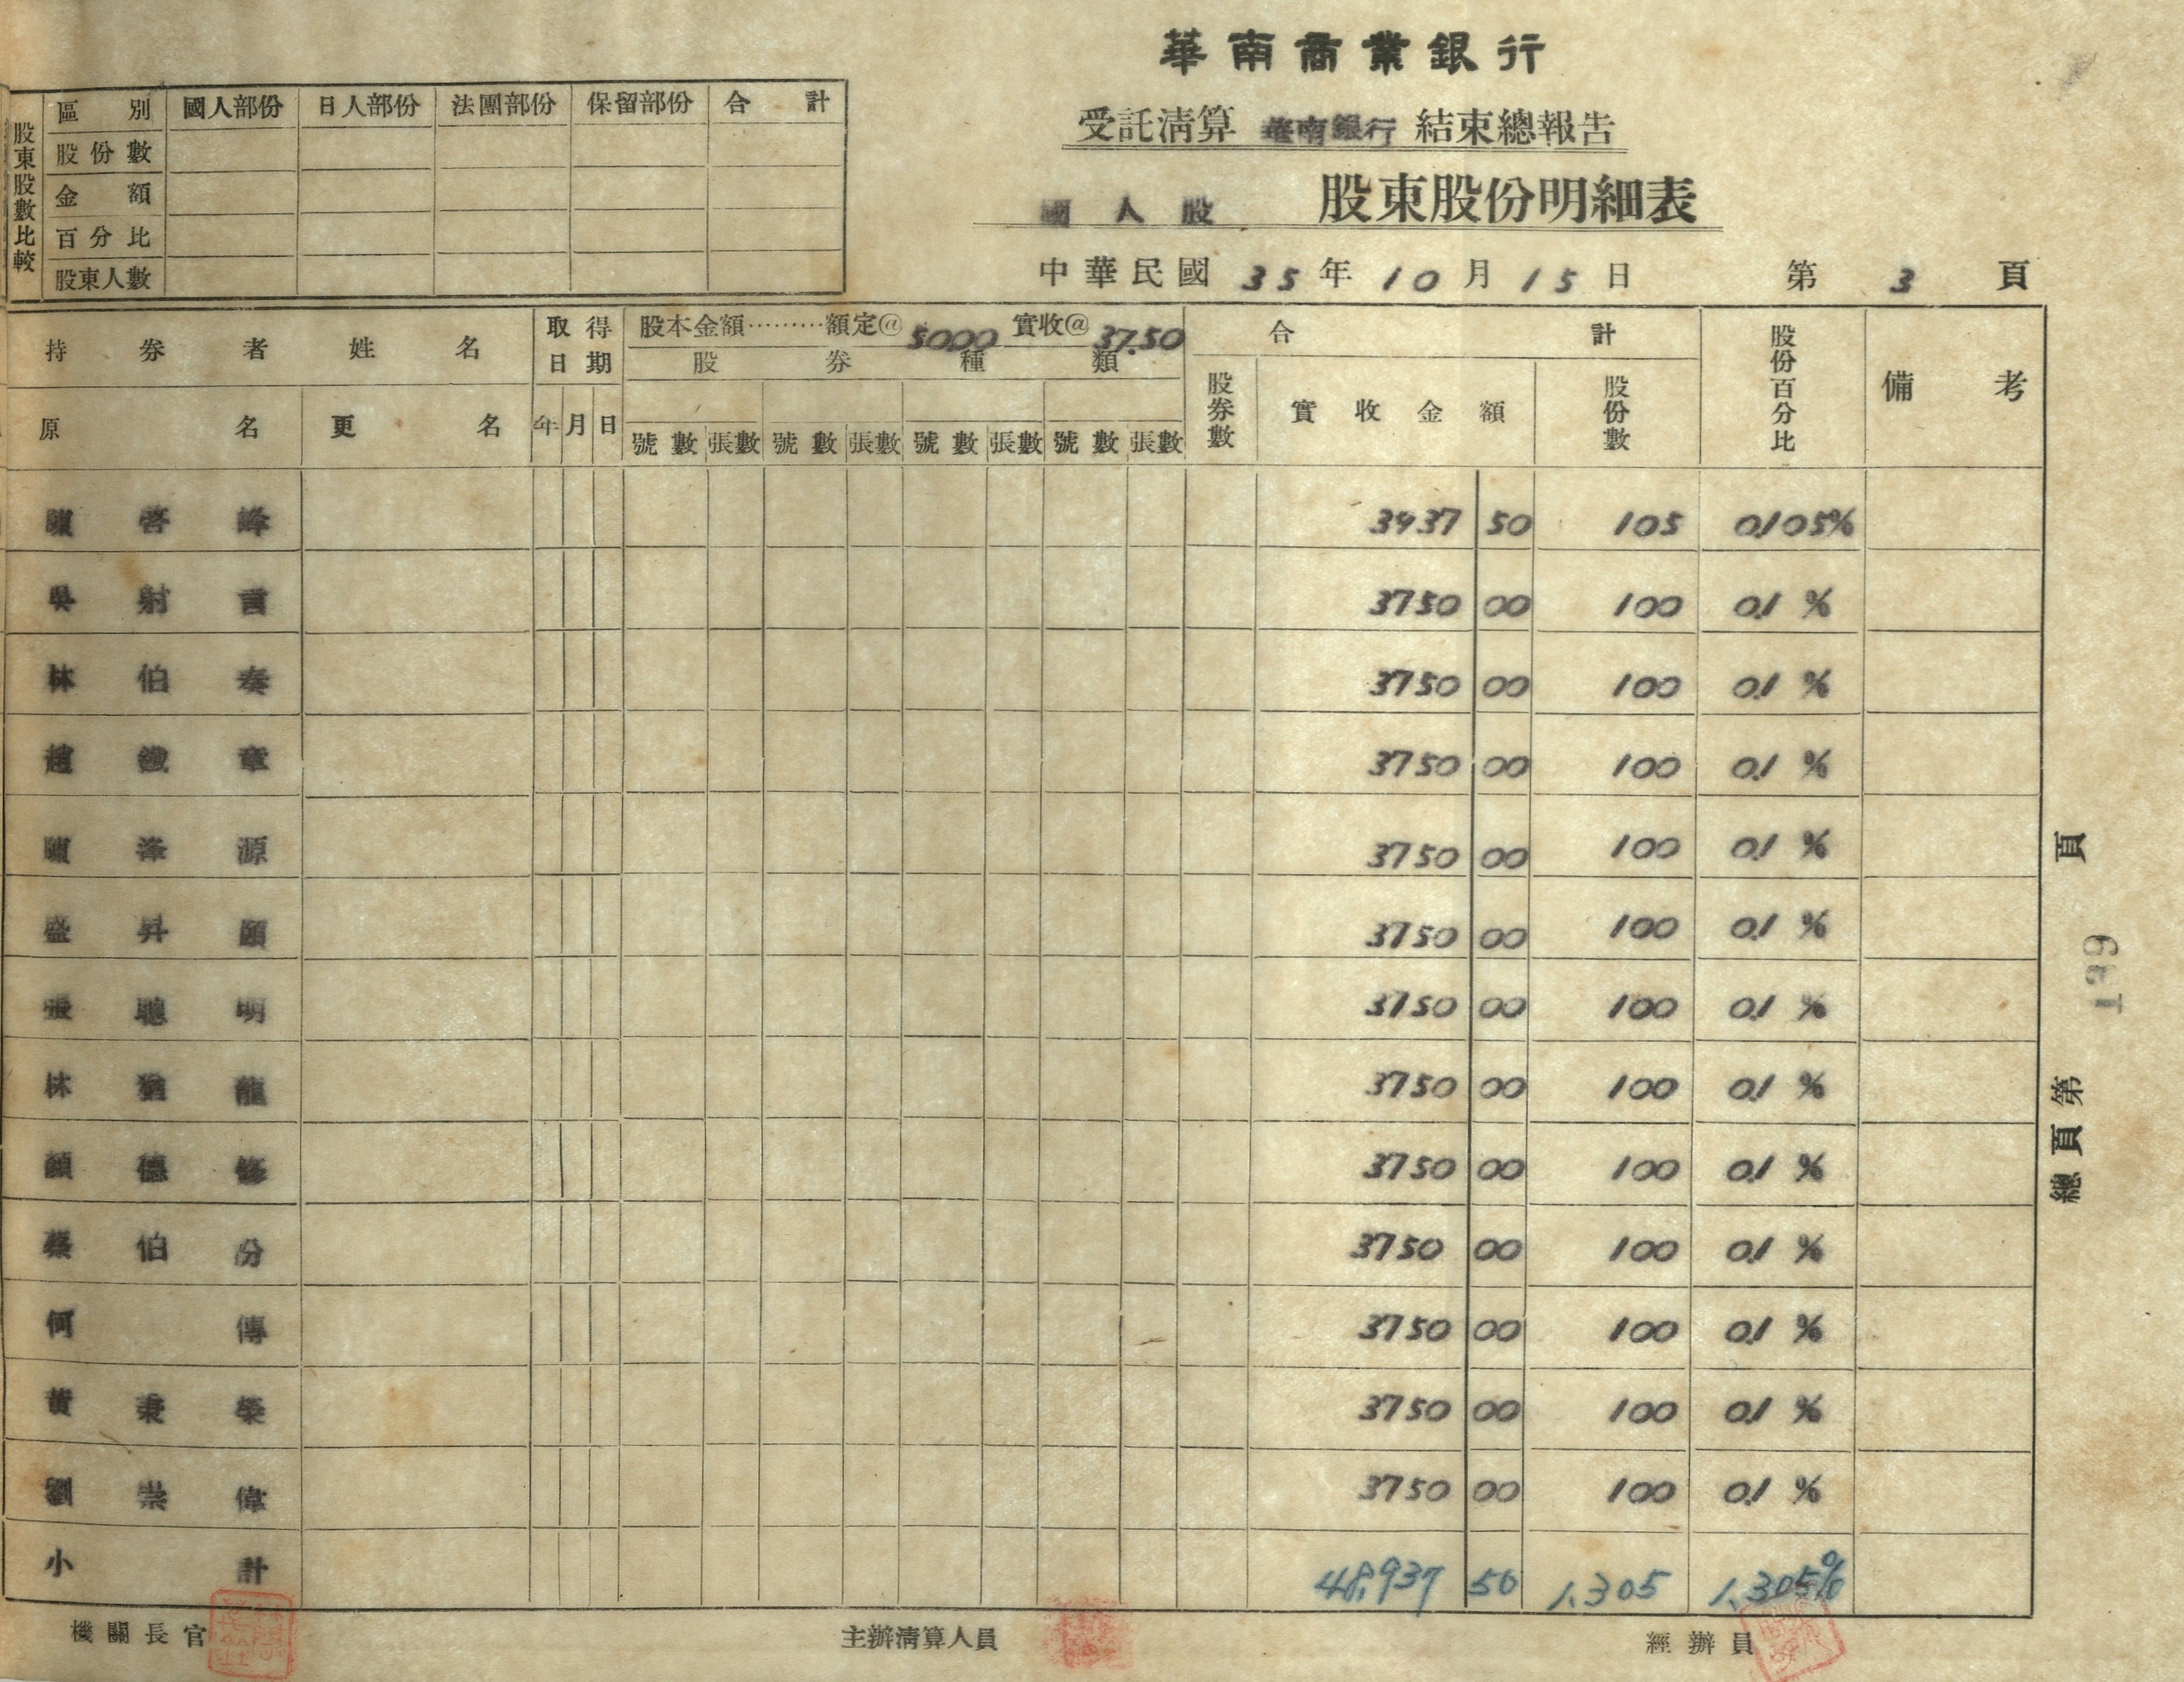 華南商業銀行
受託清算 華南銀行 結束總報告
國人股 股東股份明細表
中華民國 35 年 10 月 15 日 第 3 頁
股東股數比較
區別 國人部份 日人部份 法團部份 保留部份 合計
股份數
金額
百分比
股東人數
持券者姓名 取得日期 股本金額………額定@ 5000 實收@ 37.50 合計 股份百分比 備考
股券種類
原名 更名 年 月 日 股券數 實收金額 股份數
號數 張數 號數 張數 號數 張數 號數 張數
啓峰 3937 50 105 0.105%
吳射 3750 00 100 0.1 %
林伯奏 3750 00 100 0.1 %
趙鐵章 3750 00 100 0.1 %
源 3750 00 100 0.1 %
盛昇頤 3750 00 100 0.1 %
張聰明 3750 00 100 0.1 %
林猶龍 3750 00 100 0.1 %
顏德修 3750 00 100 0.1 %
蔡伯汾 3750 00 100 0.1 %
何傳 3750 00 100 0.1 %
黃秉榮 3750 00 100 0.1 %
劉崇偉 3750 00 100 0.1 %
小計 48,937 50 1,305 1,305%
機關長官 主辦清算人員 經辦員
總頁第 139 頁